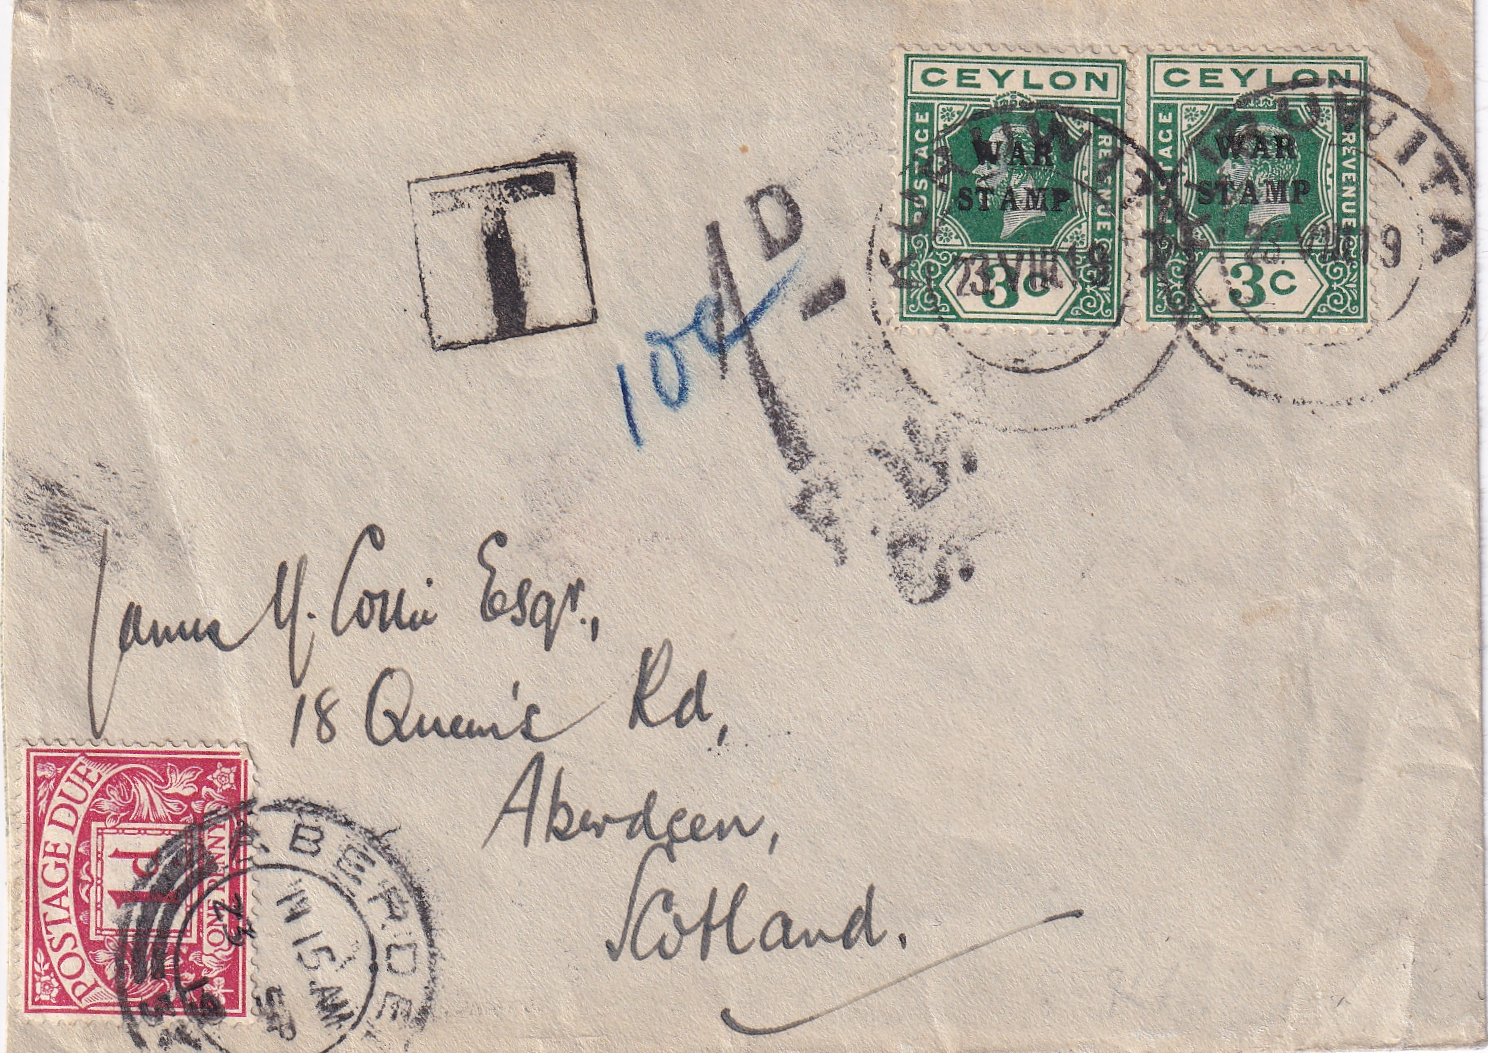 CEYLON CEYLON
POSTAGE REVENUE POSTAGE REVENUE
WAR WAR
STAMP STAMP
3c 3c
23.VIII.19 23.VIII.19
T
1D
10c
F.S.
James M. Collie Esqr.,
18 Queen's Rd,
Aberdeen,
Scotland.
POSTAGE DUE
1d
ONE PENNY
ABERDEEN
15 AM
23 SP
19